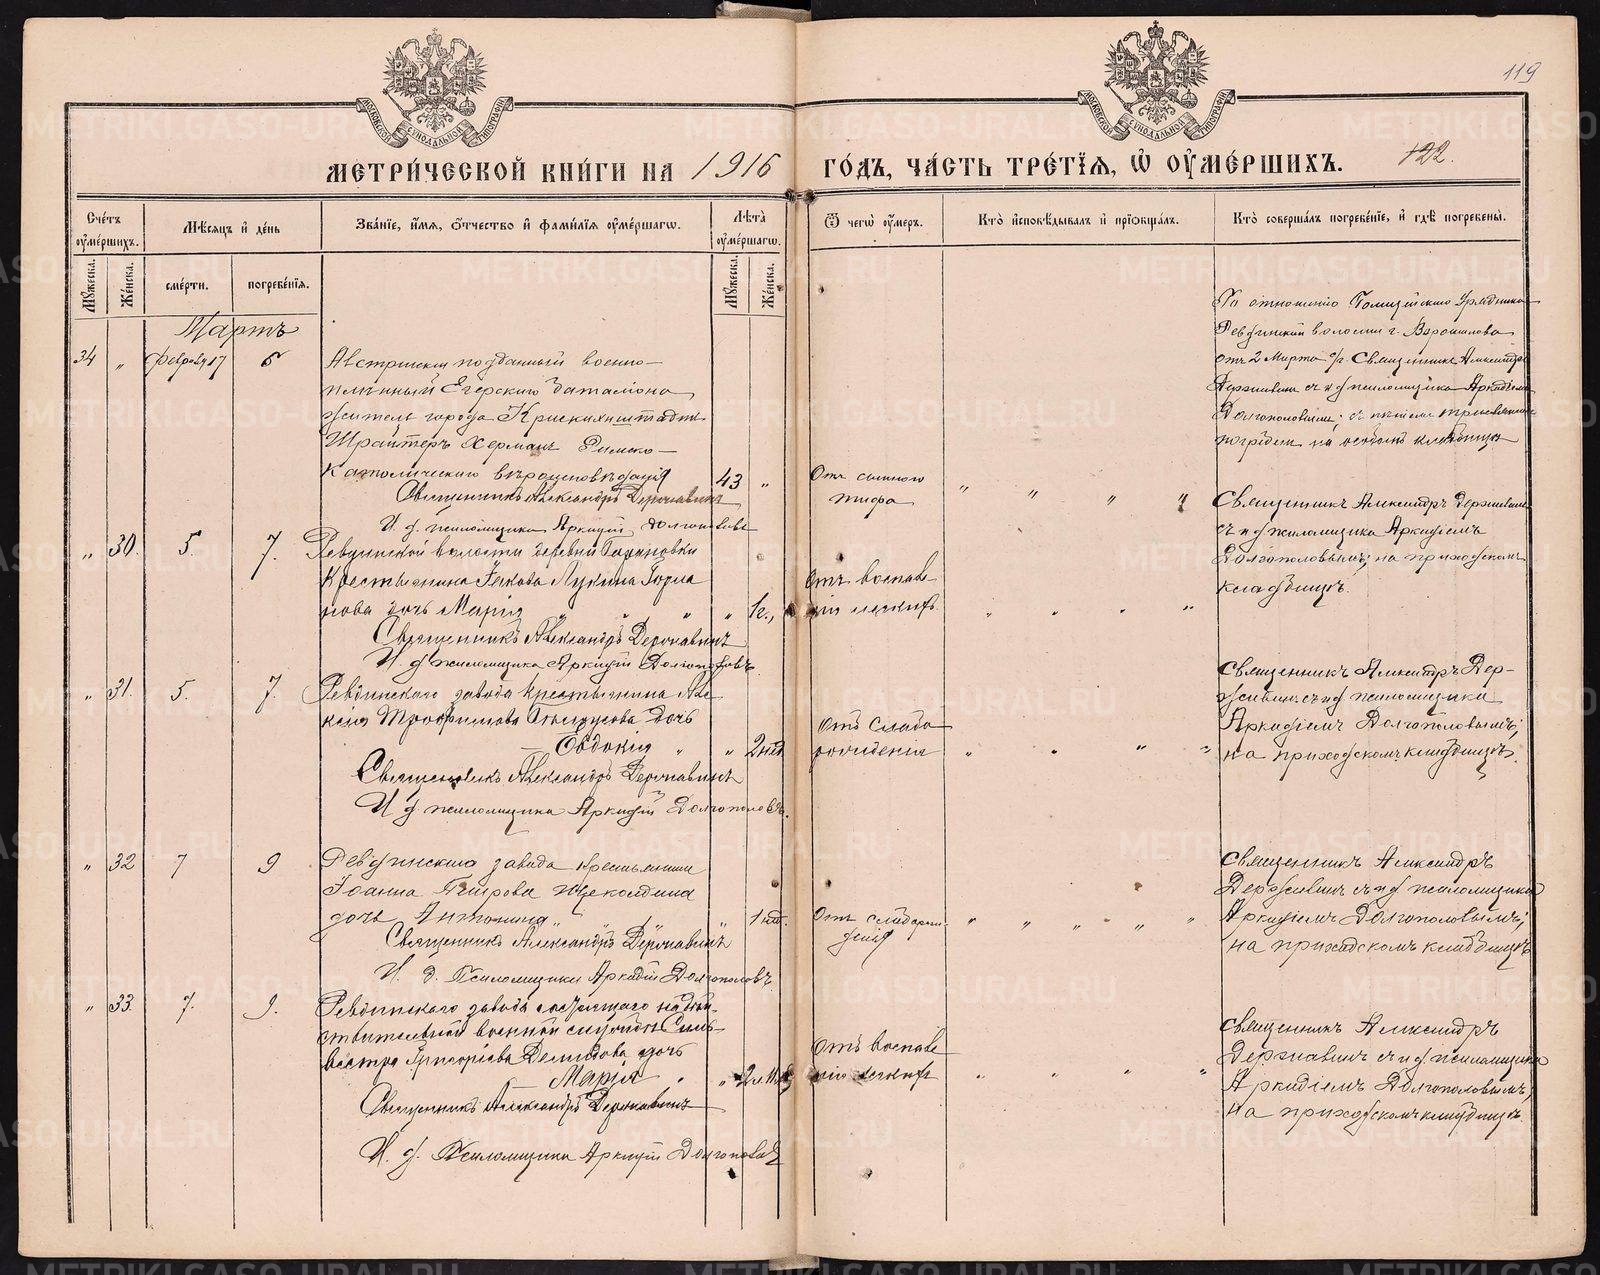 119
МОСКОВСКОЙ СѴНОДАЛЬНОЙ ТИПОГРАФІИ
МОСКОВСКОЙ СѴНОДАЛЬНОЙ ТИПОГРАФІИ
МЕТРИ́ЧЕСКОЙ КНИ́ГИ НА 1916 ГО́ДЪ, ЧА́СТЬ ТРЕ́ТІѦ, Ѽ ОУ҆МЕ́РШИХЪ. 122.
Сче́тъ оу҆ме́ршихъ.
Мѣ́сѧцъ и҆ де́нь
Зва́нїе, и҆́мѧ, ѻ҆́тчество и҆ фами́лїѧ оу҆ме́ршагѡ.
Лѣ́та оу҆ме́ршагѡ.
Ѿ чегѡ̀ оу҆́меръ.
Кто̀ и҆сповѣ́дывалъ и҆ прїѡбща́лъ.
Кто̀ соверша́лъ погребе́нїе, и҆ гдѣ̀ погребены̀.
Мꙋ́жеска.
Же́нска.
сме́рти.
погребе́нїѧ.
Мꙋ́жеска.
Же́нска.
Мартъ
34 „ Февраль 17 6
Австрійскій подданный военно-
плѣнный Егерскаго баталіона
житель города
Шрайтеръ Херманъ Римско-
Католическаго вѣроисповѣданія 43 „
Священникъ Александръ Державинъ
И. д. псаломщика Аркадій Долгополовъ
Отъ сыпного
тифа
По отношенію Полицейскаго Урядника
Ревдинской волости г. Ворошилова
отъ 2 Марта с/г. Священникъ Александръ
Державинъ съ и д псаломщика Аркадіемъ
Долгополовымъ;
погребенъ на особомъ кладбищѣ
„ 30. 5. 7.
Ревдинской волости деревни
Крестьянина Іакова Лукина
дочь Марія „ „ „ 1г.
Священникъ Александръ Державинъ
И. д. псаломщика Аркадій Долгополовъ
Отъ воспале
нія легкихъ
Священникъ Александръ Державинъ
съ и д псаломщика Аркадіемъ
Долгополовымъ; на приходскомъ
кладбищѣ.
„ 31. 5. 7.
Ревдинскаго завода крестьянина Але
ксія Трофимова дочь
Евдокія „ „ 2нед.
Священникъ Александръ Державинъ
И. д. псаломщика Аркадій Долгополовъ.
Отъ слабо
рожденія
Священникъ Александръ Дер-
жавинъ съ и д псаломщика
Аркадіемъ Долгополовымъ;
на приходскомъ кладбищѣ.
„ 32 7 9
Ревдинскаго завода крестьянина
Іоанна Петрова Щеколдина
дочь Антонина „ „ „ 1 нед.
Священникъ Александръ Державинъ
И. д. Псаломщика Аркадій Долгополовъ
Отъ слаборож-
денія
Священникъ Александръ
Державинъ съ и д псаломщика
Аркадіемъ Долгополовымъ;
на приходскомъ кладбищѣ
„ 33. 7. 9.
Ревдинскаго завода состоящаго на дѣй-
ствительной военной службѣ Силь-
вестра Григоріева Демидова дочь
Марія „ „ 2 л.
Священникъ Александръ Державинъ
И. д. Псаломщика Аркадій Долгополовъ
Отъ воспале
нія легкихъ
Священникъ Александръ
Державинъ съ и д псаломщика
Аркадіемъ Долгополовымъ;
на приходскомъ кладбищѣ.
METRIKI.GASO-URAL.RU